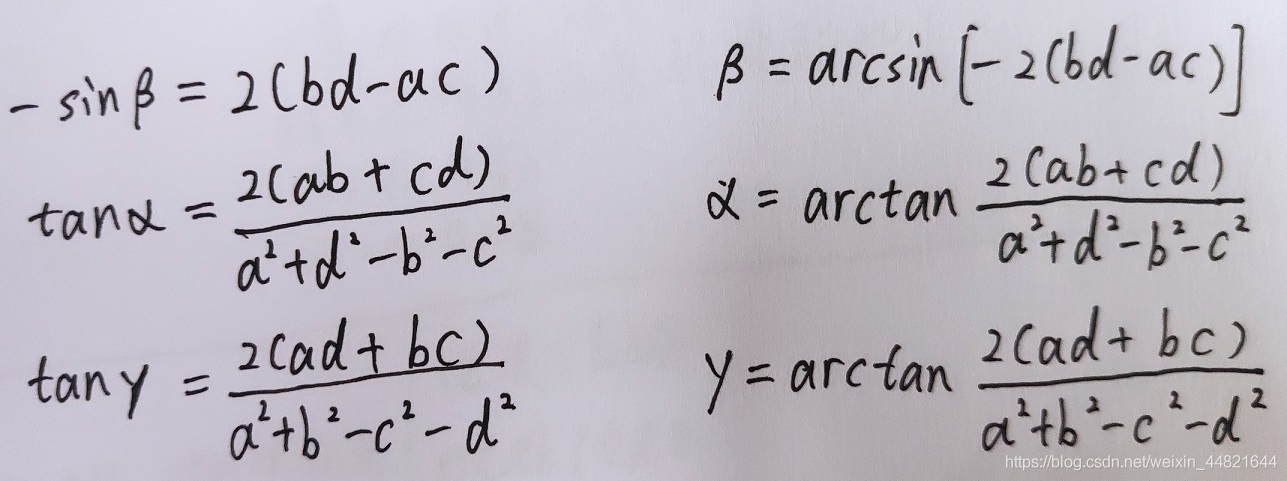 -sinβ = 2(bd-ac)    β = arcsin[-2(bd-ac)]
tanα = 2(ab + cd) / a²+d²-b²-c²    α = arctan 2(ab+cd) / a²+d²-b²-c²
tanγ = 2(ad + bc) / a²+b²-c²-d²    γ = arctan 2(ad+ bc) / a²+b²-c²-d²
https://blog.csdn.net/weixin_44821644